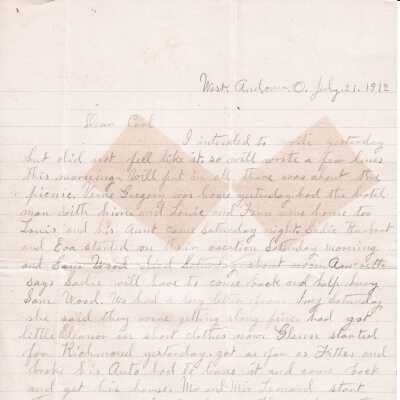 West Andover O. July 21. 1912
Dear Carl
I intended to write yesterday
but did not feel like it so will wrote a few lines
this morning. Will put in all there was about the
picnic. Verne Gregory was home yesterday had the hotel
man with him and Louie and Fern came home too
Louis and his Aunt came Saturday night. Sadie
and Eva started on their vacation Saturday morning
and Wood died Saturday about noon
says Sadie will have to come back and help bury
Sam Wood. We had a long letter from Saturday
she said they were getting along fine had got
little Eleanor in short clothes now. Glenn started
for Richmond yesterday. got as far as and
broke his Auto had to leave it and come back
and get his horse. Mr and Mrs Leonard start